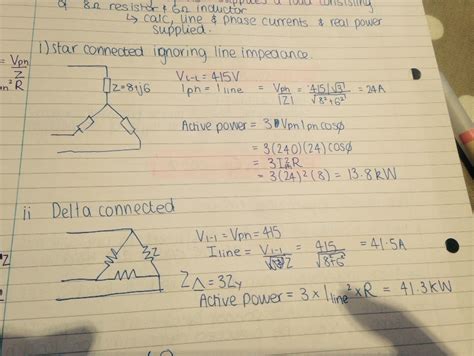 supplies a load consisting
of 8Ω resistor & 6Ω inductor
↳ calc, line & phase currents & real power
supplied.
i) star connected ignoring line impedance.
= Vpn
Z
Z=8+j6
V_L-L = 415V
Iph = Iline = Vpn / |Z| = 415/√3 / √8²+6² = 24A
Active power = 3 Vpn Ipn cosφ
= 3(240)(24)cosφ
= 3I²R
= 3(24)²(8) = 13.8kW
ii Delta connected
V_L-L = Vpn = 415
Iline = V_L-L / Z = 415 / √8²+6² = 41.5A
Z
Z_Δ = 3Z_Y
Active Power = 3 × Iline² × R = 41.3kW